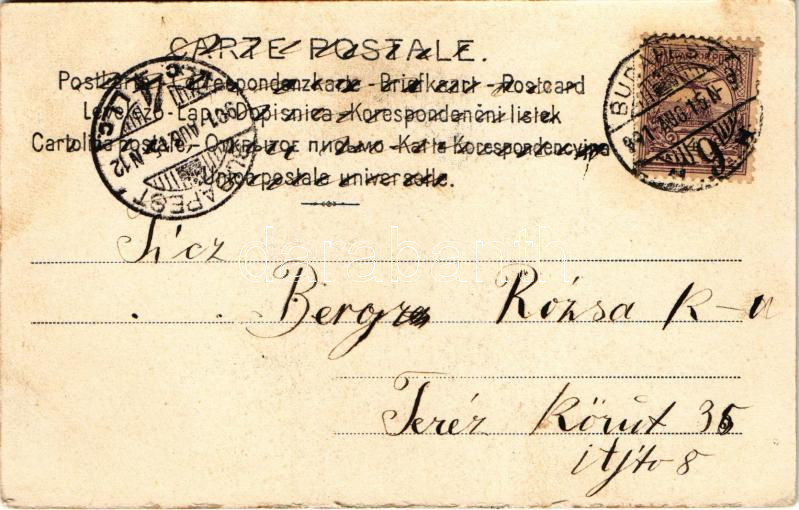 CARTE POSTALE.
Postkarte - Correspondenzkarte - Briefkaart - Postcard
Levelező-Lap - Dopisnica - Korespondenční listek
Cartolina postale - Открытое письмо - Karta Korespondencyjna
Union postale universelle.
BUDAPEST
901 AUG 15 N12
BUDAPEST
901 AUG 15 N
9
darabanth
Bergze Rózsa k-a
Teréz Körut 35
ajto 8